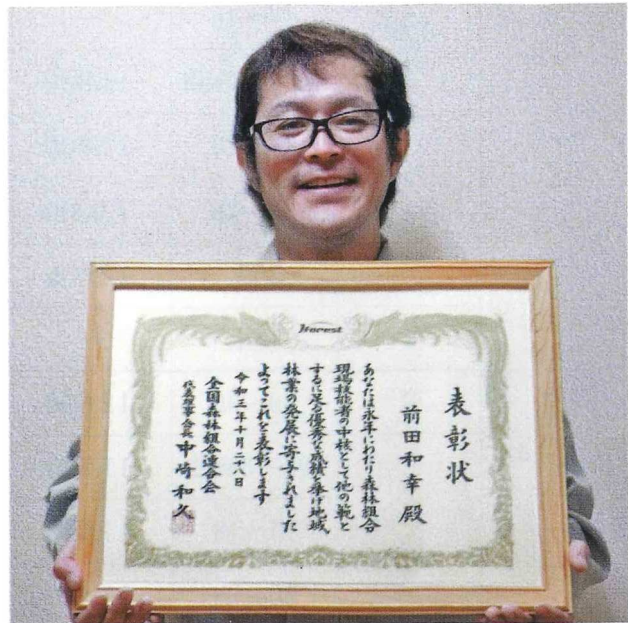 表彰状
前田和幸殿
あなたは永年にわたり森林組合
現場技能者の中核として他の範と
するに足る優秀な成績を挙げ地域
林業の発展に寄与されました
よってこれを表彰します
令和三年十月二十八日
全国森林組合連合会
代表理事会長 中崎和久